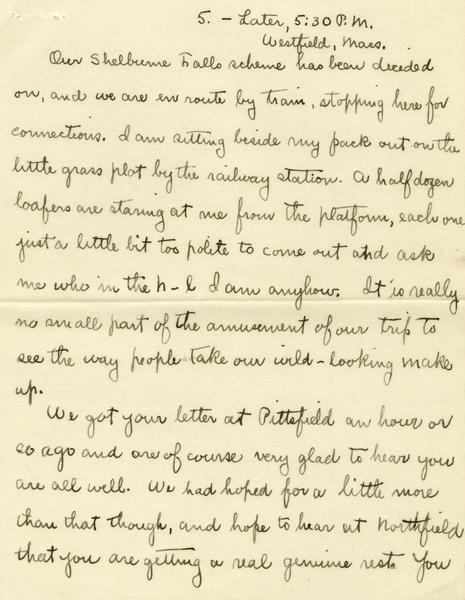 5. – Later, 5:30 P.M.
Westfield, Mass.
Our Shelburne Falls scheme has been decided
on, and we are en route by train, stopping here for
connections. I am sitting beside my pack out on the
little grass plot by the railway station. A half dozen
loafers are staring at me from the platform, each one
just a little bit too polite to come out and ask
me who in the h-l I am anyhow. It is really
no small part of the amusement of our trip to
see the way people take our wild-looking make
up.
We got your letter at Pittsfield an hour or
so ago and are of course very glad to hear you
are all well. We had hoped for a little more
than that though, and hope to hear at Northfield
that you are getting a real genuine rest. You